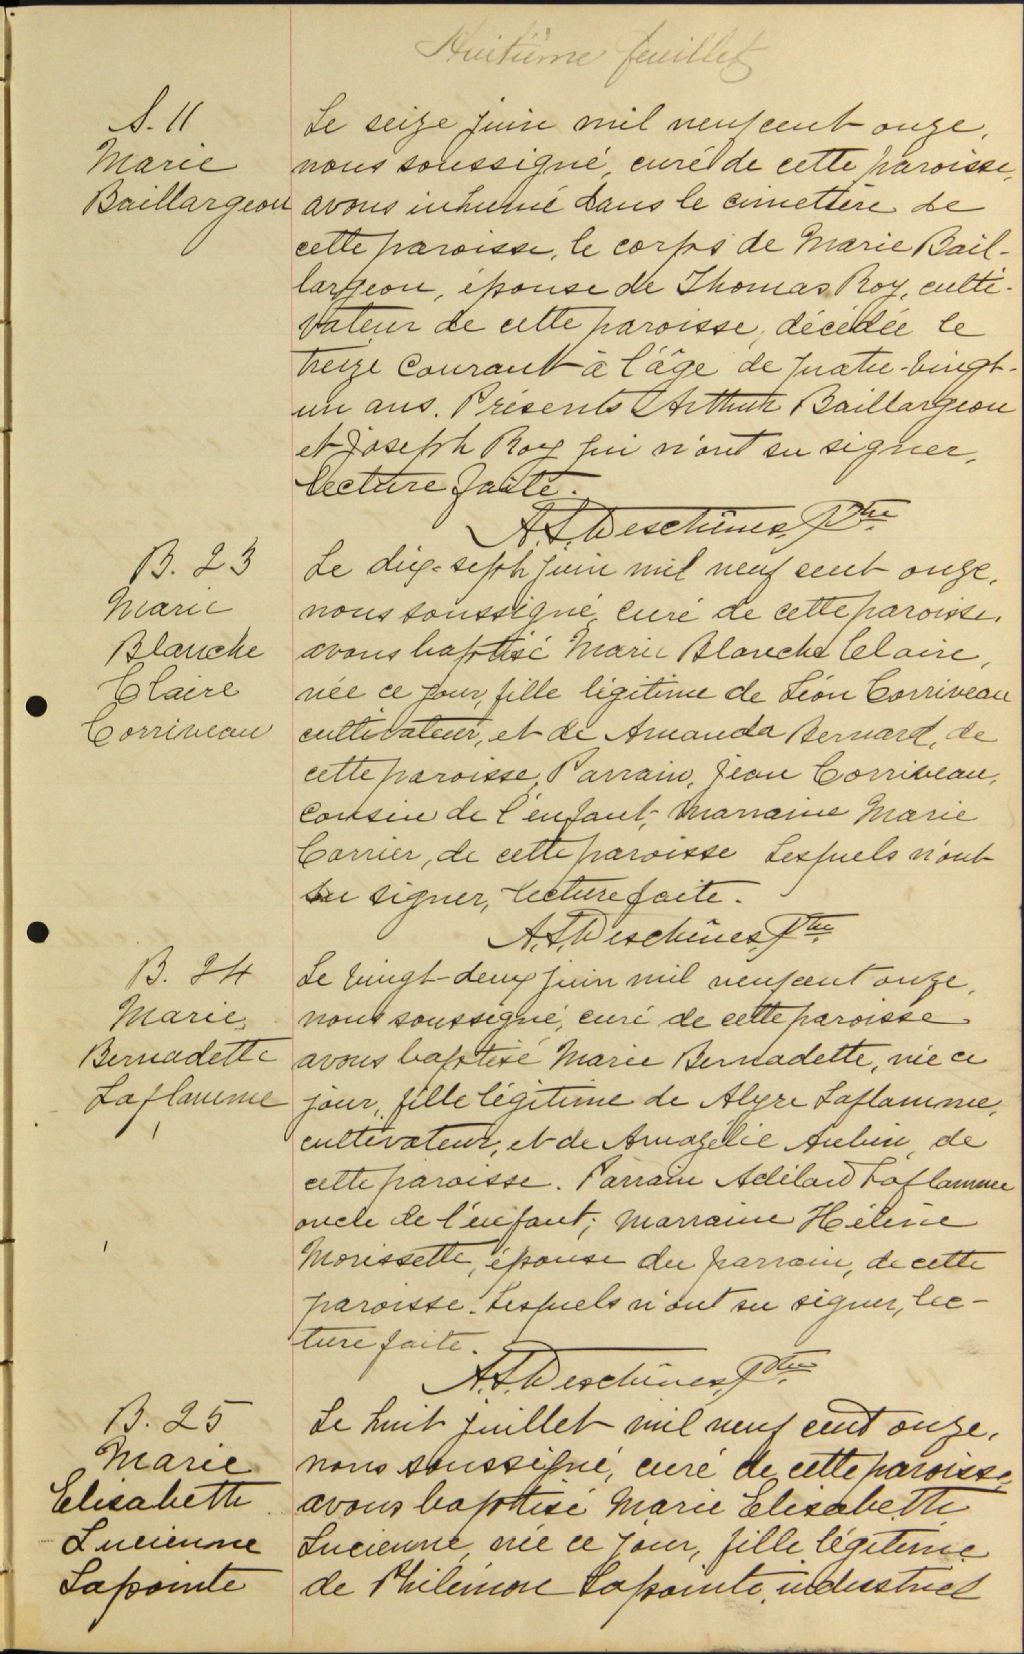 Huitième feuillet
S. 11
Marie
Baillargeon
Le seize juin mil neuf cent onze,
nous soussigné, curé de cette paroisse,
avons inhumé dans le cimetière de
cette paroisse, le corps de Marie Bail-
largeon, épouse de Thomas Roy, culti-
vateur de cette paroisse, décédée le
treize courant à l'âge de quatre-vingt-
un ans. Présents Arthur Baillargeon
et Joseph Roy qui n'ont su signer,
lecture faite.
A.S. Deschênes, Ptre
B. 23
Marie
Blanche
Claire
Corriveau
Le dix-sept juin mil neuf cent onze,
nous soussigné, curé de cette paroisse,
avons baptisé Marie Blanche Claire,
née ce jour, fille légitime de Léon Corriveau
cultivateur, et de Amanda Bernard, de
cette paroisse. Parrain, Jean Corriveau,
cousin de l'enfant; marraine Marie
Carrier, de cette paroisse Lesquels n'ont
su signer, lecture faite.
A.S. Deschênes, Ptre
B. 24
Marie
Bernadette
Laflamme
Le vingt-deux juin mil neuf cent onze,
nous soussigné, curé de cette paroisse
avons baptisé Marie Bernadette, née ce
jour, fille légitime de Alyre Laflamme,
cultivateur, et de Amazélie Aubin, de
cette paroisse. Parrain Adélard Laflamme
oncle de l'enfant; marraine Hélène
Morissette, épouse du parrain, de cette
paroisse. Lesquels n'ont su signer, lec-
ture faite.
A.S. Deschênes, Ptre
B. 25
Marie
Elisabeth
Lucienne
Lapointe
Le huit juillet mil neuf cent onze,
nous soussigné, curé de cette paroisse,
avons baptisé Marie Elisabeth
Lucienne, née ce jour, fille légitime
de Philémon Lapointe, industriel